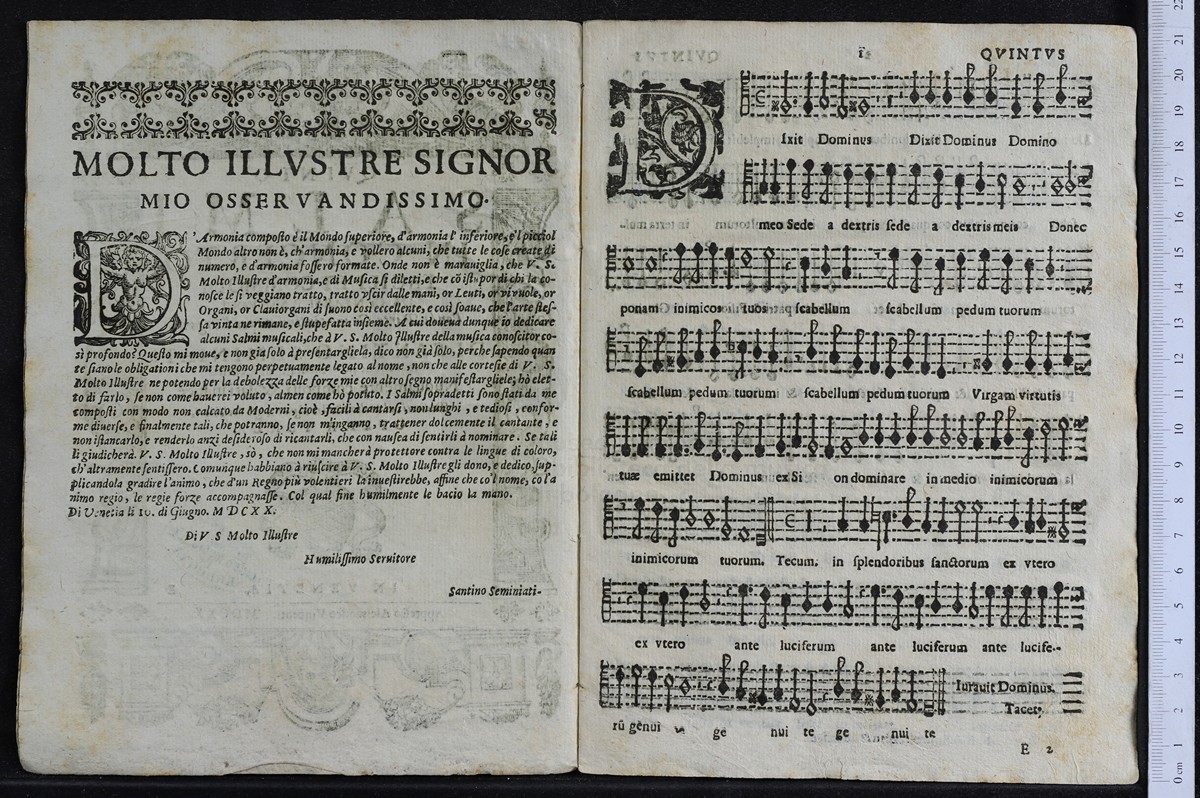 MOLTO ILLVSTRE SIGNOR
MIO OSSERVANDISSIMO.
D'Armonia composto è il Mondo superiore, d'armonia l' inferiore, e'l picciol
Mondo altro non è, ch'armonia, e vollero alcuni, che tutte le cose create di
numero, e d'armonia fossero formate. Onde non è marauiglia, che V. S.
Molto Illustre d'armonia, e di Musica si diletti, e che cō istupor di chi la co-
nosce le si veggiano tratto, tratto vscir dalle mani, or Leuti, or viuole, or
Organi, or Clauiorgani di suono così eccellente, e così soaue, che l'arte stes-
sa vinta ne rimane, e stupefatta insieme. A cui doueua dunque io dedicare
alcuni Salmi musicali, che à V. S. Molto Illustre della musica conoscitor co-
sì profondo? Questo mi moue, e non gia solo à presentargliela, dico non già solo, perche sapendo quan
te siano le obligationi che mi tengono perpetuamente legato al nome, non che alle cortesie di V. S.
Molto Illustre ne potendo per la debolezza delle forze mie con altro segno manifestargliele; hò elet-
to di farlo, se non come hauerei voluto, almen come hò potuto. I Salmi sopradetti sono stati da me
composti con modo non calcato da Moderni, cioè, facili à cantarsi, non lunghi, e tediosi, confor-
me diuerse, e finalmente tali, che potranno, se non m'inganno, trattener dolcemente il cantante, e
non istancarlo, e renderlo anzi desideroso di ricantarli, che con nausea di sentirli à nominare. Se tali
li giudicherà. V. S. Molto Illustre, sò, che non mi mancherà protettore contra le lingue di coloro,
ch'altramente sentissero. Comunque habbiano à riuscire à V. S. Molto Illustre gli dono, e dedico, sup-
plicandola gradire l'animo, che d'un Regno più volentieri la inuestirebbe, affine che co'l nome, co l'a
nimo regio, le regie forze accompagnasse. Col qual fine humilmente le bacio la mano.
Di Venetia li 10. di Giugno. MDCXX.
Di V S Molto Illustre
Humilissimo Seruitore
Santino Seminiati.
1 QVINTVS
DIxit Dominus Dixit Dominus Domino
meo Sede a dextris sede a dextris meis Donec
ponam inimicos tuos scabellum scabellum pedum tuorum
scabellum pedum tuorum & scabellum pedum tuorum Virgam virtutis
tuæ emittet Dominus ex Si on dominare in medio inimicorum
inimicorum tuorum. Tecum. in splendoribus sanctorum ex vtero
ex vtero ante luciferum ante luciferum ante lucife-
rū genui ge nui te ge nui te
Iurauit Dominus.
Tacet.
E 2